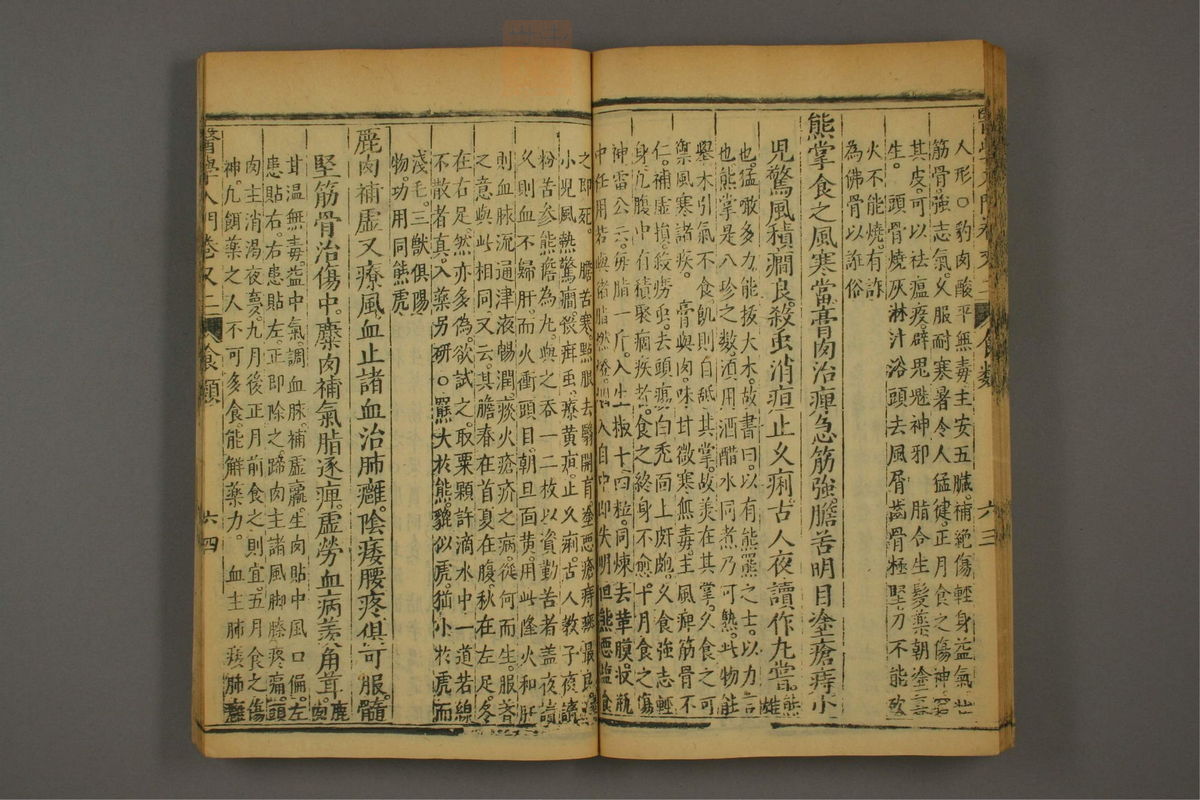 人形○豹肉酸平無毒主安五臟補絕傷輕身益氣壯
筋骨強志氣久服耐寒暑令人猛健正月食之傷神
其皮可以祛瘟疫辟鬼魅神邪 脂合生髮藥朝塗
生。頭骨燒灰淋汁浴頭去風屑齒骨極堅刀不能砍
火不能燒。有詐
為佛骨以誑俗
熊掌食之風寒當膏肉治痺急筋強膽苦明目塗瘡痔小
兒驚風積癎良殺虫消疸止久痢古人夜讀作丸嘗 熊雄
也猛噉多力能拔大木故書曰以有熊羆之士以力言
也熊掌是八珍之數須用酒醋水同煮乃可熟此物能
舉木引氣不食飢則自舐其掌故美在其掌久食之可
禦風寒諸疾。 膏與肉味甘微寒無毒主風痺筋骨不
仁補虛損殺癆虫去頭瘍白禿面上皯皰久食強志輕
身凡腹中有積聚痼疾者食之終身不愈十月食之傷
神雷公云每脂一斤入生椒十四粒同煉去革膜收瓶
中任用若與猪脂燃燈烟入目中即失明但熊惡鹽食
之即死。 膽苦寒點眼去翳開盲塗惡瘡痔瘻最良療
小兒風熱驚癎殺疳虫療黃疸止久痢古人教子夜讀
粉苦參熊膽為丸與之吞一二枚以資勤苦者蓋夜讀
久則血不歸肝而火衝頭目朝旦面黃用此降火和肝
則血脉流通津液暢潤痰火瘡疥之病從何而生服耆
之意與此相同又云其膽春在首夏在腹秋在左足冬
在右足然亦多偽欲試之取粟顆許滴水中一道若線
不散者真入藥另研○羆大於熊貔似虎猫小於虎而
淺毛三獸俱陽
物功用同熊虎
麂肉補虛又療風血止諸血治肺癰陰痿腰疼俱可服髓
堅筋骨治傷中麋肉補氣脂逐痺虛勞血病羨角茸 鹿肉
甘溫無毒益中氣調血脉補虛羸生肉貼中風口偏左
患貼右右患貼左正即除之蹄肉主諸風脚膝疼痛頭
肉主消渴夜夢九月後正月前食之則宜五月食之傷
神凡餌藥之人不可多食能解藥力。 血主肺痿肺癰
醫學入門卷又二 食類 六三
醫學入門卷又二 食類 六四